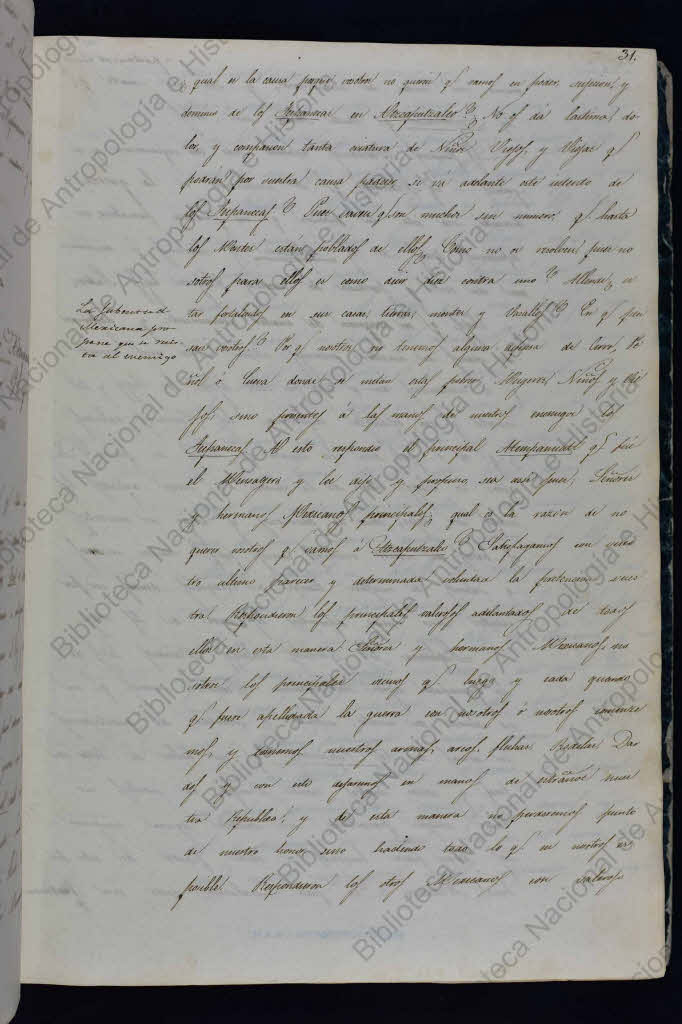 31.
¿ qual es la causa porque vosotros no quereis q.e vamos en poder, sugecion, y
dominio de los Tepanecas en Atzcaputzalco? No os dá lastima, do-
lor, y compasion tanta criatura de Niños Viejos, y Viejas q.e
por vuestra causa padecer si vá adelante este intento de
los Tepanecas? Pues son muchos sin numero, q.e hasta
los Montes están poblados de ellos, Como no se pues no
sotros para ellos es como decir diez contra uno? Allende, es
tar fortalecidos en sus casas, tierras, montes y Vasallos? En q.e pen
sais vosotros? Por q.e nosotros no tenemos alguna defensa de Cerro, Pe
ñol ó Cueva donde se metan estas pobres Mugeres, Niños y Vie
jos, sino ponerlos á las manos de nuestros enemigos los
Tepanecas. Al esto respondio el principal Atempanecatl q.e fue
el Mensagero y les dijo y propuso, sea asi pues, Señores
y hermanos Mexicanos principales, qual es la razón de no
querer vosotros q.e vamos á Atzcaputzalco? Satisfagamos con vues
tro ultimo parecer y determinada voluntad la pretencion vues
tra. Respondieron los principales valerosos adelantados de todos
ellos en esta manera Señores y hermanos Mexicanos, no
sotros los principales decimos q.e luego y cada quando
q.e fuere apellidada la guerra con vosotros ó nosotros comenze
mos, y tomemos nuestras armas, arcos, flechas Rodelas Dar
dos y con esto dejaremos en manos de estraños nues
tra Republica, y de esta manera no perderemos punto
de nuestro honor, sino haciendo todo lo q.e en nosotros es
posible. Respondieron los otros Mexicanos con valeroso
La Jubentud
Mexicana pro-
pone que se resis
ta al enemigo
Biblioteca Nacional de Antropología e Historia